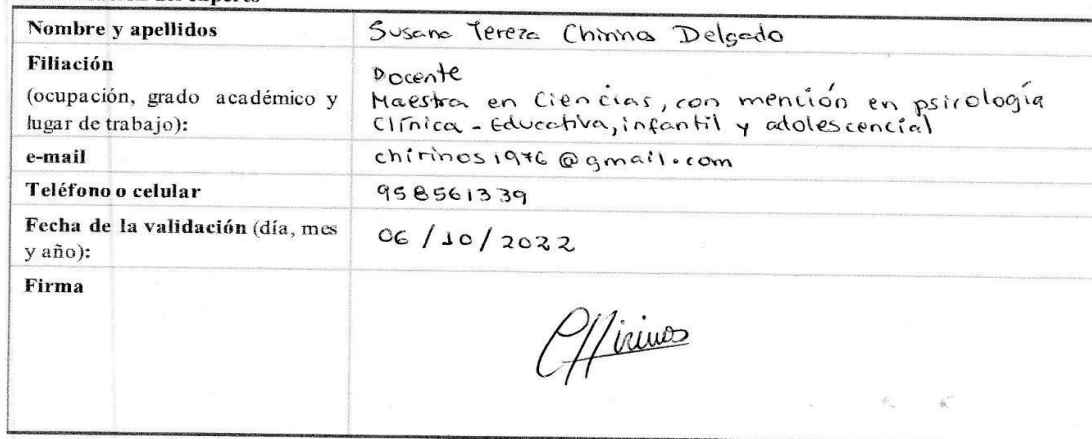 Nombre y apellidos
Susana Tereza Chirinos Delgado
Filiación
(ocupación, grado académico y
lugar de trabajo):
Docente
Maestra en Ciencias, con mención en psicología
Clínica - Educativa, infantil y adolescencial
e-mail
chirinos1976@gmail.com
Teléfono o celular
958561339
Fecha de la validación (día, mes
y año):
06/10/2022
Firma
Chirinos